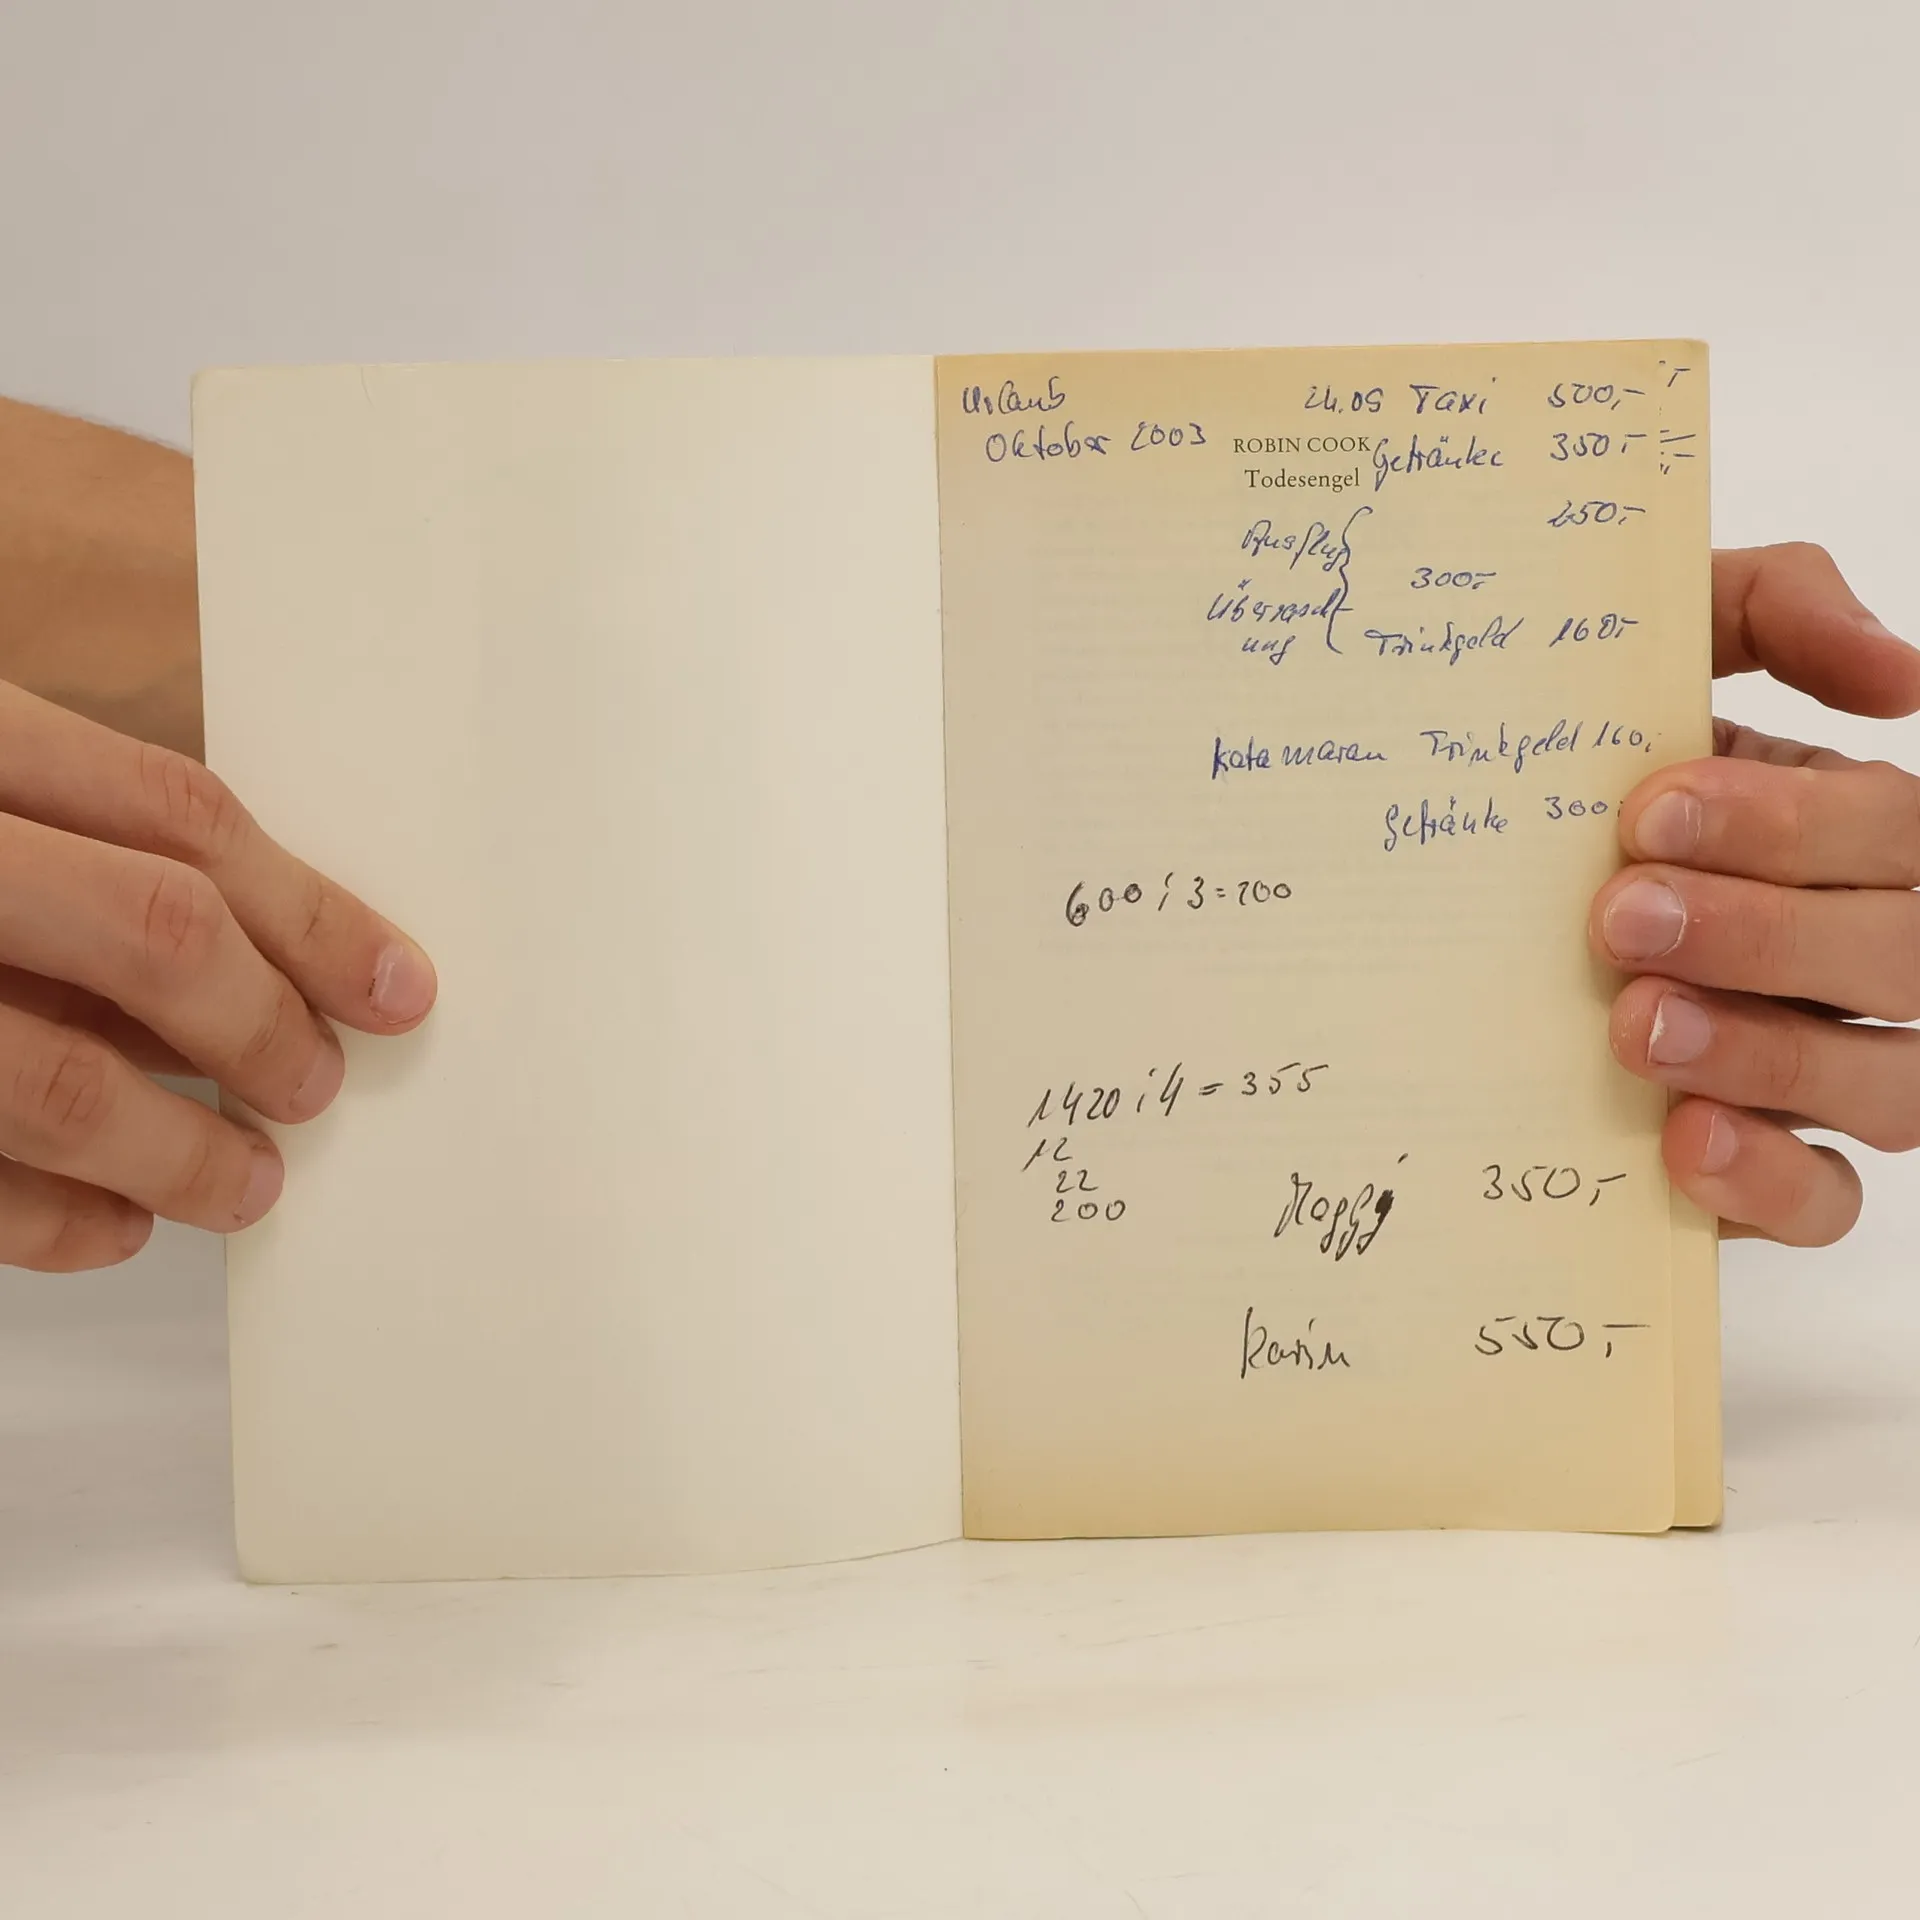 Urlaub
Oktober 2003
24.09 Taxi 500,-
ROBIN COOK
Todesengel
Getränke 350,-
250,-
Ausflug
300,-
Überrasch-
ung
Trinkgeld 160,-
Katamaran Trinkgeld 160,
Getränke 300,
600 : 3 = 200
1420 : 4 = 355
12
22
200
Maggy 350,-
Karin 550,-